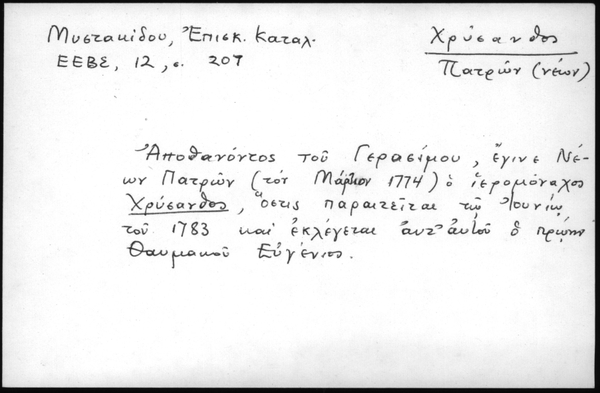 Μυστακίδου, Ἐπισκ. Καταλ.
ΕΕΒΣ, 12, σ. 207
Χρύσανθος
Πατρῶν (νέων)
Ἀποθανόντος τοῦ Γερασίμου, ἔγινε Νέ-
ων Πατρῶν (τόν Μάρτιον 1774) ὁ ἱερομόναχος
Χρύσανθος, ὅστις παραιτεῖται τῷ Ἰουνίῳ
τοῦ 1783 καί ἐκλέγεται ἀντ' αὐτοῦ ὁ πρώην
Θαυμακοῦ Εὐγένιος.